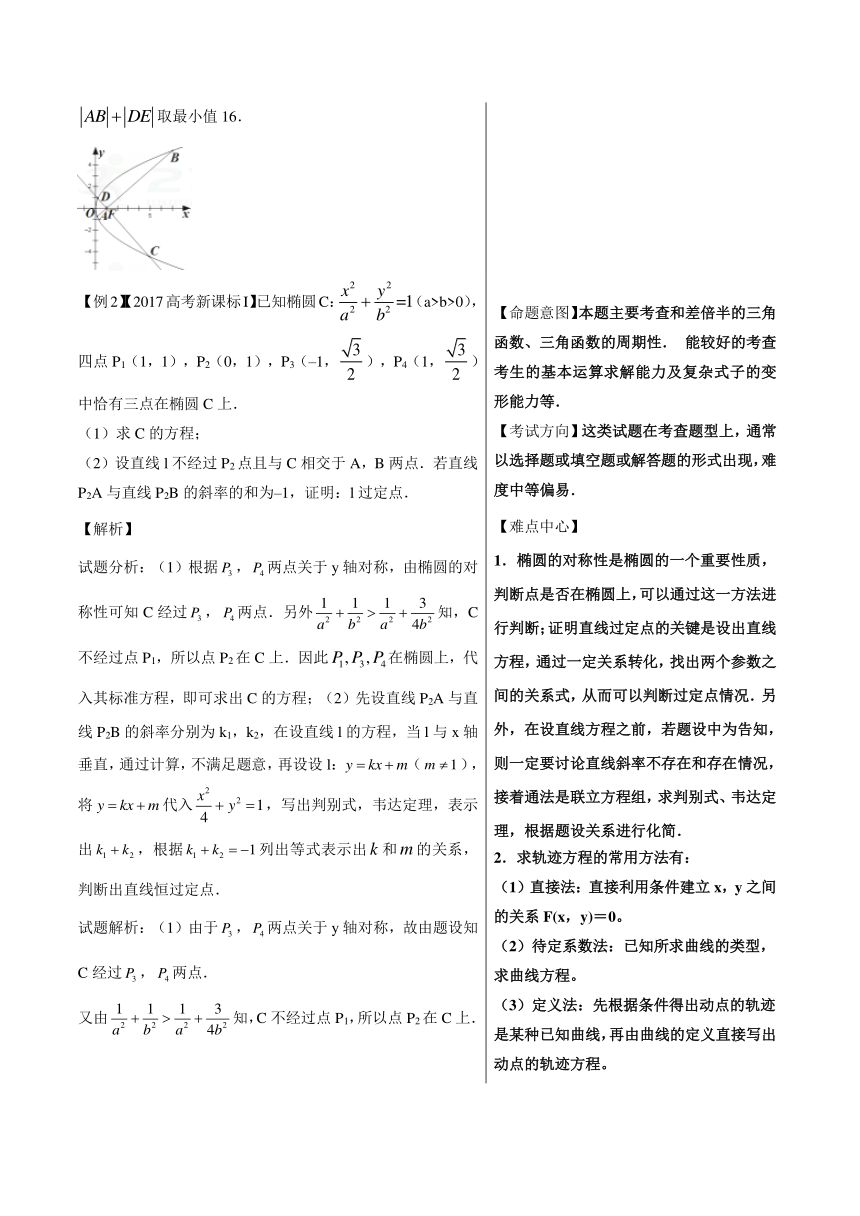 |AB|+|DE|取最小值 16.
y
4
2
D
B
O
A
F
5
x
-2
-4
C
【例 2】【2017 高考新课标 I】已知椭圆 C: x²/a² + y²/b² =1(a>b>0),
四点 P₁(1,1),P₂(0,1),P₃(–1, √3/2),P₄(1, √3/2)
中恰有三点在椭圆 C 上.
(1)求 C 的方程;
(2)设直线 l 不经过 P₂ 点且与 C 相交于 A,B 两点.若直线
P₂A 与直线 P₂B 的斜率的和为–1,证明:l 过定点.
【解析】
试题分析:(1)根据 P₃ , P₄ 两点关于 y 轴对称,由椭圆的对
称性可知 C 经过 P₃ , P₄ 两点.另外 1/a² + 1/b² > 1/a² + 3/4b² 知,C
不经过点 P₁,所以点 P₂ 在 C 上.因此 P₁, P₃, P₄ 在椭圆上,代
入其标准方程,即可求出 C 的方程;(2)先设直线 P₂A 与直
线 P₂B 的斜率分别为 k₁,k₂,在设直线 l 的方程,当 l 与 x 轴
垂直,通过计算,不满足题意,再设设 l: y = kx + m ( m ≠ 1 ),
将 y = kx + m 代入 x²/4 + y² = 1,写出判别式,韦达定理,表示
出 k₁ + k₂ ,根据 k₁ + k₂ = −1 列出等式表示出 k 和 m 的关系,
判断出直线恒过定点.
试题解析:(1)由于 P₃ , P₄ 两点关于 y 轴对称,故由题设知
C 经过 P₃ , P₄ 两点.
又由 1/a² + 1/b² > 1/a² + 3/4b² 知,C 不经过点 P₁,所以点 P₂ 在 C 上.
【命题意图】本题主要考查和差倍半的三角
函数、三角函数的周期性. 能较好的考查
考生的基本运算求解能力及复杂式子的变
形能力等.
【考试方向】这类试题在考查题型上,通常
以选择题或填空题或解答题的形式出现,难
度中等偏易.
【难点中心】
1.椭圆的对称性是椭圆的一个重要性质,
判断点是否在椭圆上,可以通过这一方法进
行判断;证明直线过定点的关键是设出直线
方程,通过一定关系转化,找出两个参数之
间的关系式,从而可以判断过定点情况.另
外,在设直线方程之前,若题设中为告知,
则一定要讨论直线斜率不存在和存在情况,
接着通法是联立方程组,求判别式、韦达定
理,根据题设关系进行化简.
2.求轨迹方程的常用方法有:
(1)直接法:直接利用条件建立 x,y 之间
的关系 F(x,y)=0。
(2)待定系数法:已知所求曲线的类型,
求曲线方程。
(3)定义法:先根据条件得出动点的轨迹
是某种已知曲线,再由曲线的定义直接写出
动点的轨迹方程。